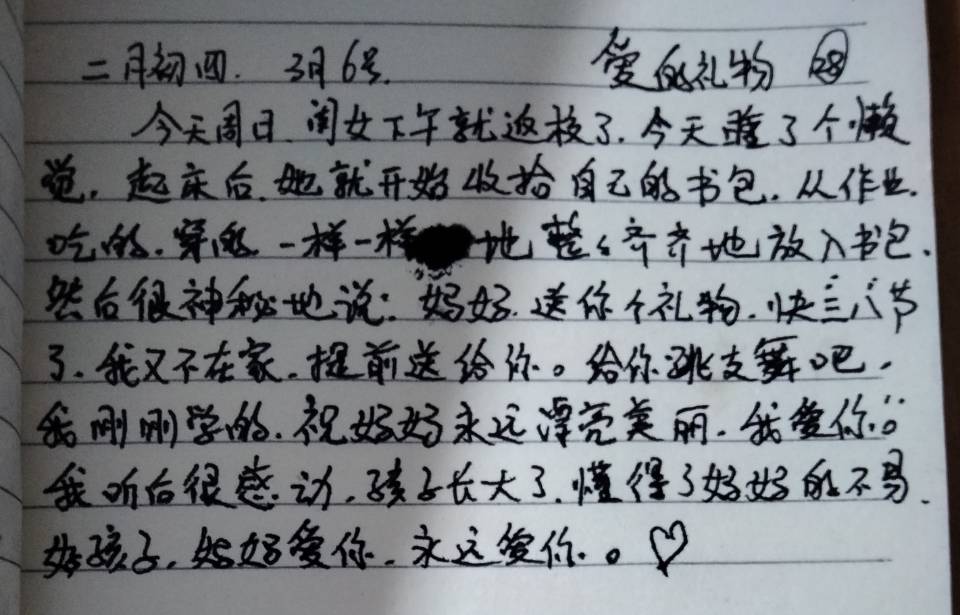 二月初四. 3月6号. 爱的礼物 28
今天周日.闺女下午就返校了.今天睡了个懒
觉.起床后.她就开始收拾自己的书包.从作业.
吃的.穿的.一样一样地整整齐齐地放入书包.
然后很神秘地说:妈妈.送你个礼物.快三八节
了.我又不在家.提前送给你。给你跳支舞吧.
我刚刚学的.祝妈妈永远漂亮美丽.我爱你。"
我听后很感动.孩子长大了.懂得了妈妈的不易.
好孩子.妈妈爱你.永远爱你.。♡